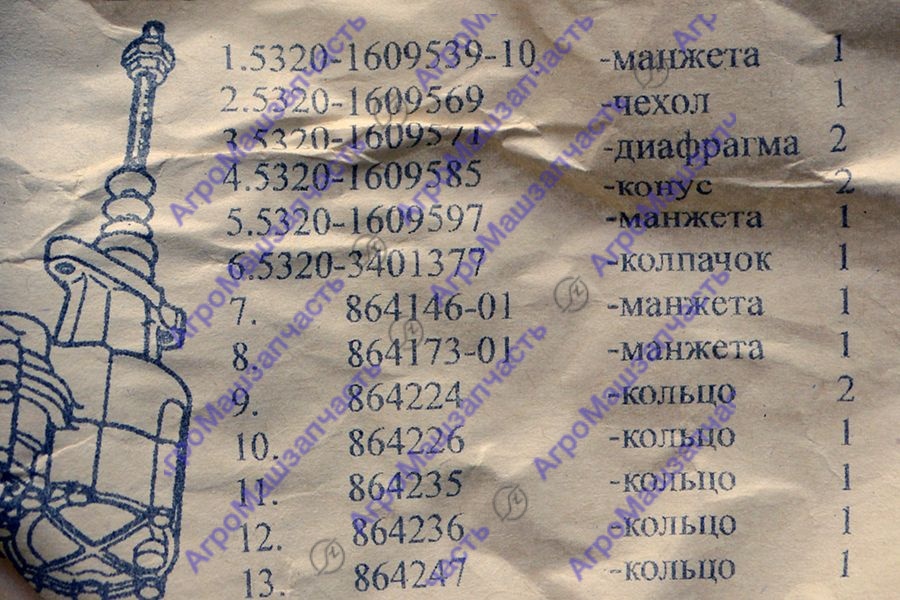 1.5320-1609539-10 -манжета 1
2.5320-1609569 -чехол 1
3.5320-1609571 -диафрагма 2
4.5320-1609585 -конус 2
5.5320-1609597 -манжета 1
6.5320-3401377 -колпачок 1
7. 864146-01 -манжета 1
8. 864173-01 -манжета 1
9. 864224 -кольцо 2
10. 864226 -кольцо 1
11. 864235 -кольцо 1
12. 864236 -кольцо 1
13. 864247 -кольцо 1
АгроМашзапчасть